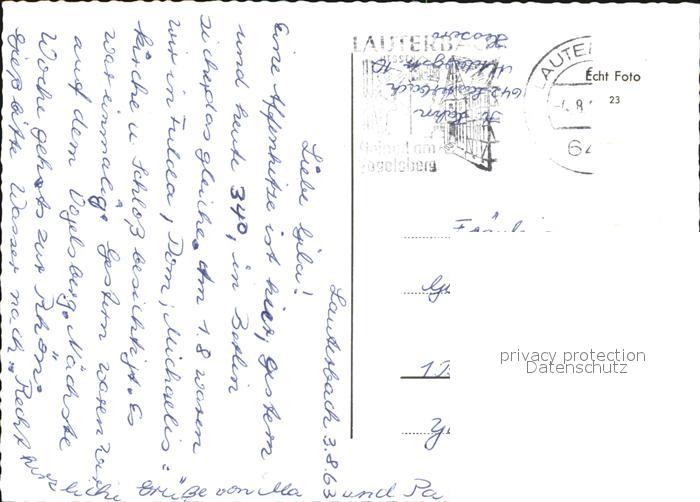 Lauterbach 3.8.63
Liebe Gila!
Eine Affenhitze ist hier, gestern
und heute 34°, in Berlin
sicher das gleiche. Am 1.8 waren
wir in Fulda, Dom, Michaelis=
kirche u Schloß besichtigt. Es
war einmalig. Gestern waren wir
auf dem Vogelsberg. Nächste
Woche gehts zur Rhön.
Gieß bitte Wasser nach. Recht
herzliche Grüße von Ma und Pa
LAUTERBACH
Hessen
642 Lauterbach
Vogelsberg
LAUTE
Echt Foto
23
Fräulein
privacy protection
Datenschutz